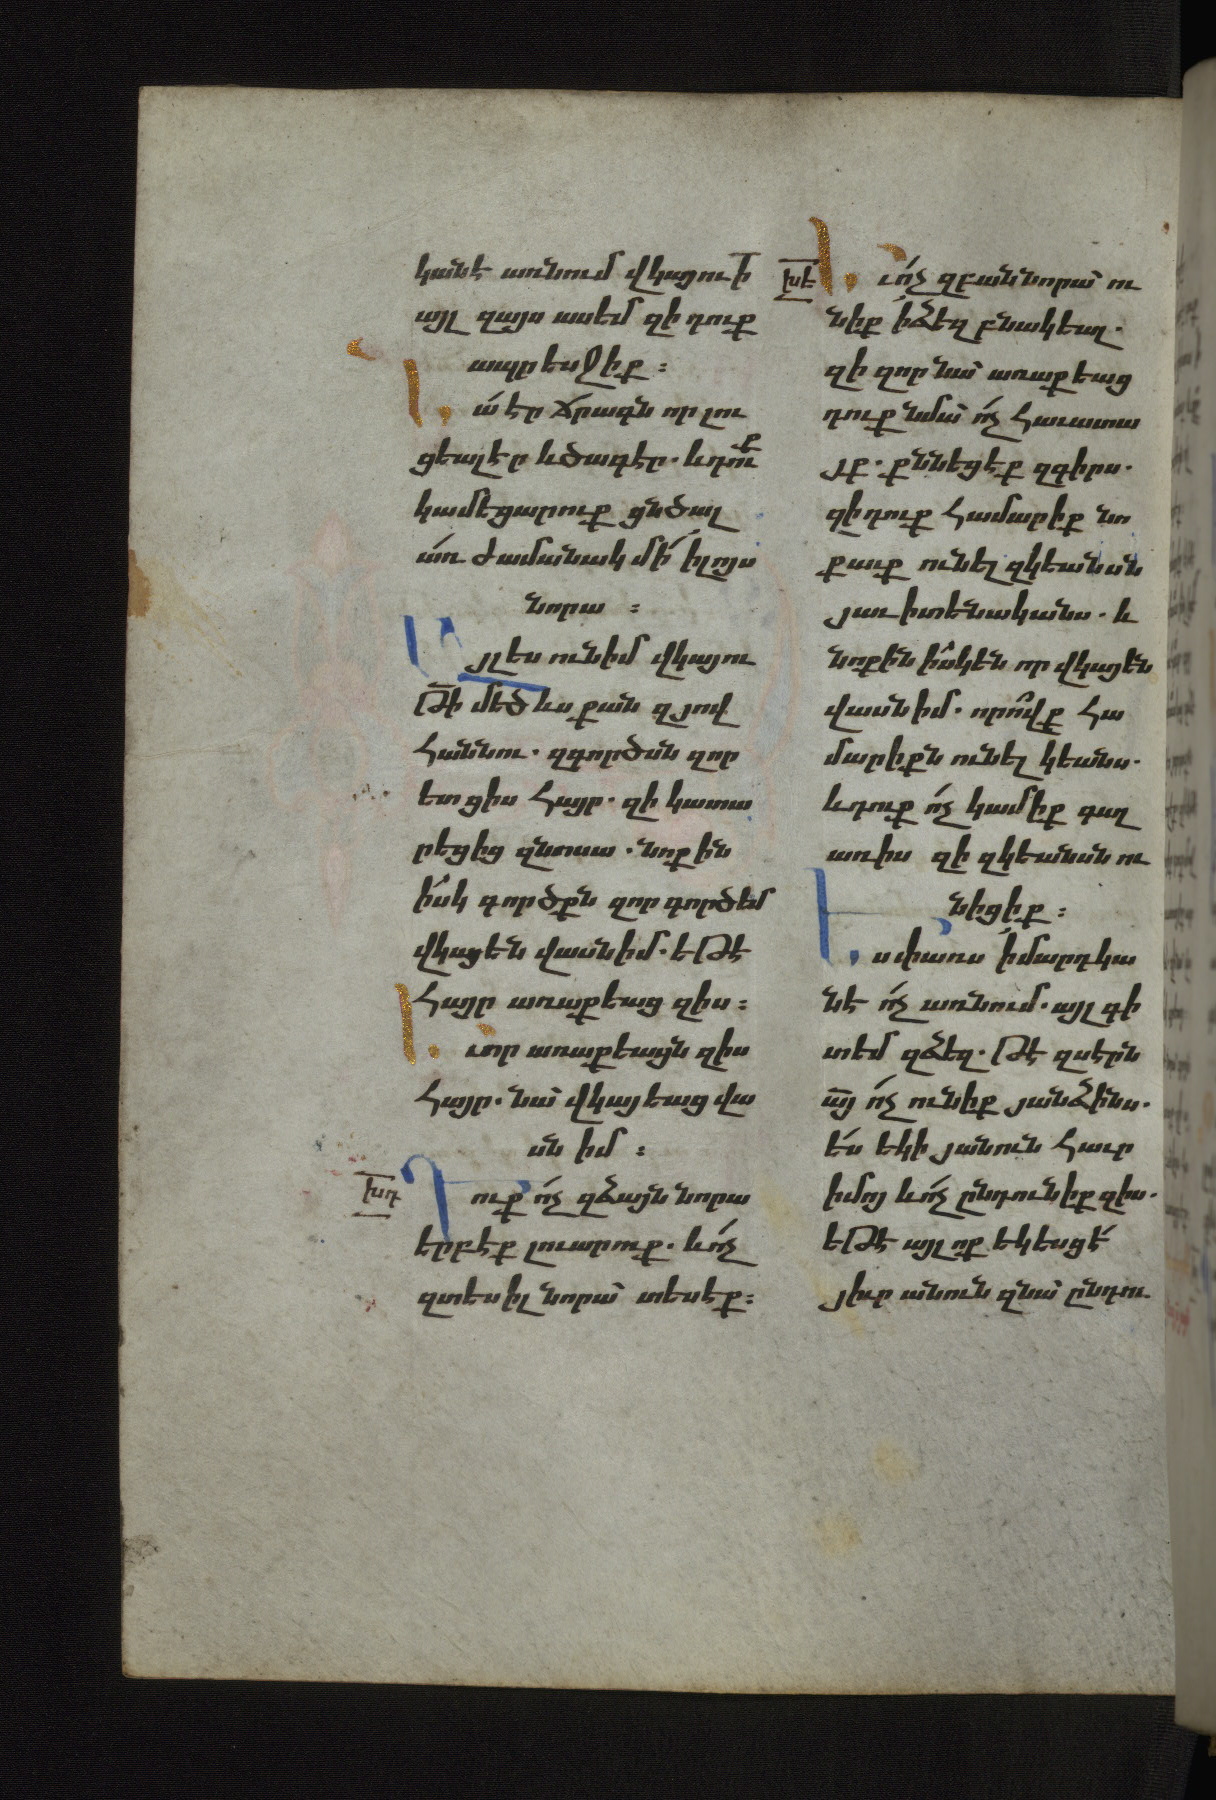 կանէ առնում վկայուի
այլ զայս ասեմ զի դուք
ապրեսջիք :
Նա՛ էր ճրագն որ լու
ցեալ էր և ծագէր . և դուք
կամեցարուք ցնծալ
առ ժամանակ մի՛ ի լոյս
նորա :
Այլ ես ունիմ վկայու
թի մեծ ևս քան զյով
հաննու . զգործսն զոր
ետ ցիս հայր . զի կատա
րեցից զնոսա . նոքին
իսկ գործքն զոր գործեմ
վկայեն վասն իմ . եթէ
հայր առաքեաց զիս :
Եւ որ առաքեացն զիս
հայր . նա՛ վկայեաց վա
սն իմ :
խդ
Դուք ո՛չ զձայն նորա
երբէք լուարուք . և ո՛չ
զտեսիլ նորա՛ տեսէք :
խե
Եւ ո՛չ զբանն նորա՛ ու
նիք ի ձեզ բնակեալ .
զի զոր նա՛ առաքեաց
դուք նմա՛ ո՛չ հաւատա
յք . քննեցէք զգիրս .
զի դուք համարիք նո
քաւք ունել զկեանսն
յաւիտենականս . և
նոքին իսկ են որ վկայեն
վասն իմ . որովք հա
մարիքն ունել կեանս .
և դուք ո՛չ կամիք գալ
առ իս զի զկեանսն ու
նիցիք :
Ես փառս ի մարդկա
նէ ո՛չ առնում . այլ գի
տեմ զձեզ . թէ զսէրն
այ ո՛չ ունիք յանձինս .
ե՛ս եկի յանուն հաւր
իմոյ և ո՛չ ընդունիք զիս .
եթէ այլ ոք եկեսցէ՛
յիւր անուն զնա՛ ընդու